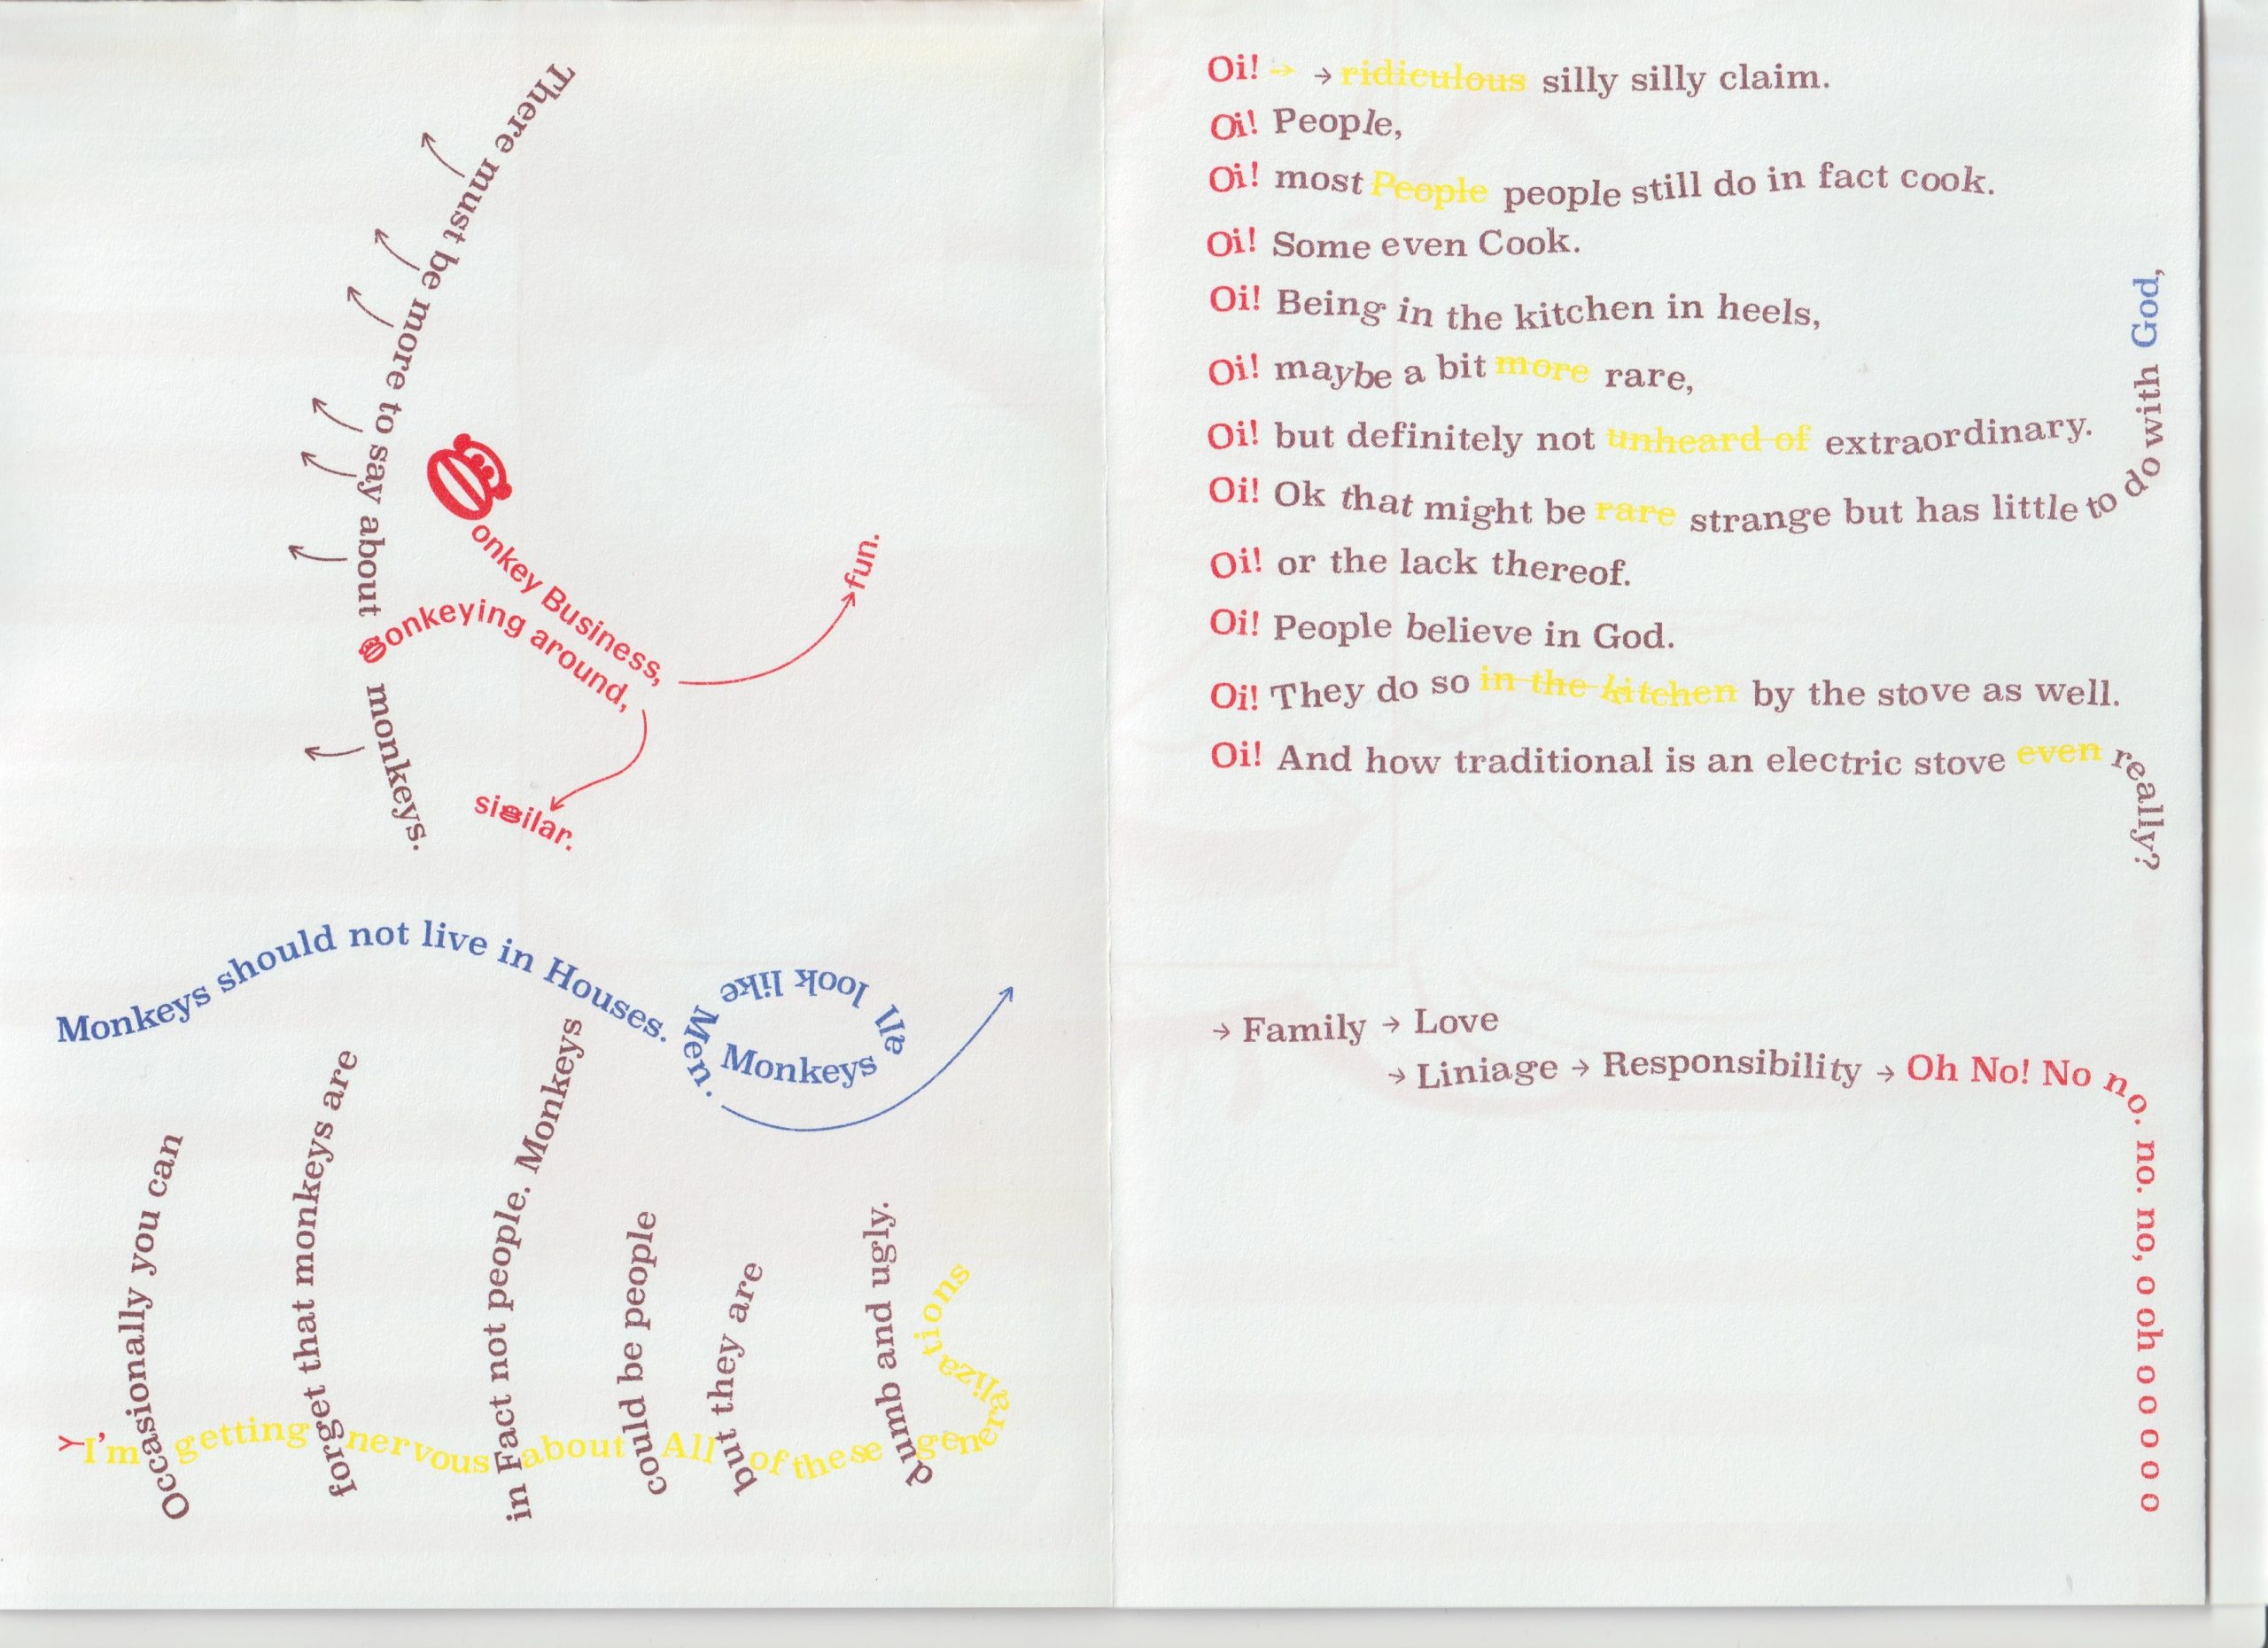 There must be more to say about monkeys.
onkey Business,
fun.
onkeying around,
similar.
Monkeys should not live in Houses.
Monkeys all look like Men.
Occasionally you can
forget that monkeys are
in Fact not people. Monkeys
could be people
but they are
dumb and ugly.
I'm getting nervous about All of these generalizations
Oi! → → ridiculous silly silly claim.
Oi! People,
Oi! most People people still do in fact cook.
Oi! Some even Cook.
Oi! Being in the kitchen in heels,
Oi! maybe a bit more rare,
Oi! but definitely not unheard of extraordinary.
Oi! Ok that might be rare strange but has little to do with God,
Oi! or the lack thereof.
Oi! People believe in God.
Oi! They do so in the kitchen by the stove as well.
Oi! And how traditional is an electric stove even really?
→ Family → Love
→ Liniage → Responsibility → Oh No! No no. no. no, o oh o o o o o